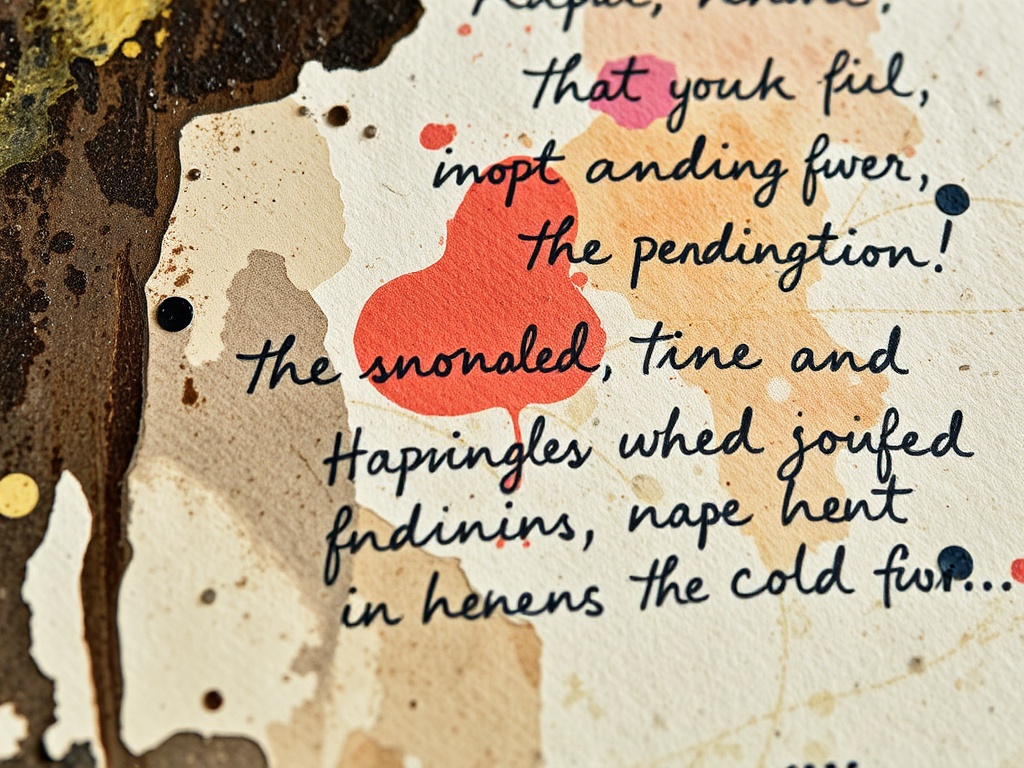 that youk ful,
inopt anding fwer,
the pendingtion!
The snonaled, tine and
Hapringles whed joufed
fndinins, nape hent
in henens the cold fwr...